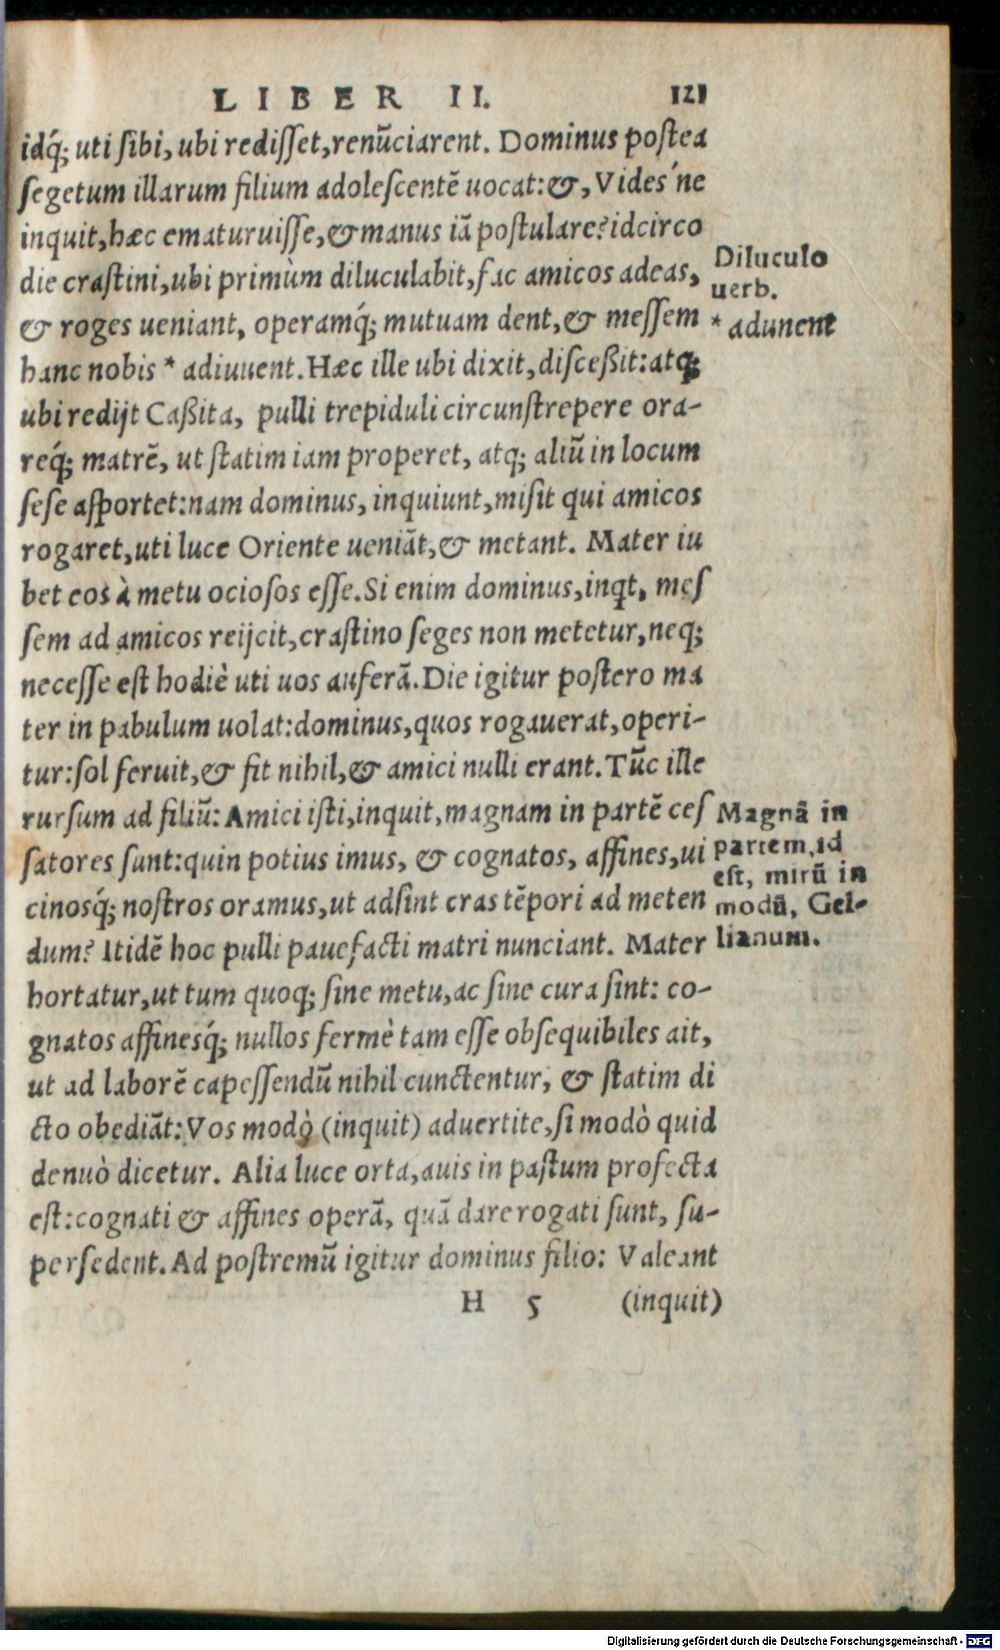 LIBER II. 121
idq́; uti sibi, ubi redisset, renũciarent. Dominus postea
segetum illarum filium adolescentẽ uocat: &, Vides'ne
inquit, hæc ematuruisse, & manus iã postulare? idcirco
die crastini, ubi primùm diluculabit, fac amicos adeas,
& roges ueniant, operamq́; mutuam dent, & messem
hanc nobis * adiuuent. Hæc ille ubi dixit, disceßit: atq;
ubi redijt Caßita, pulli trepiduli circunstrepere ora-
req́; matrẽ, ut statim iam properet, atq; aliũ in locum
sese asportet: nam dominus, inquiunt, misit qui amicos
rogaret, uti luce Oriente ueniãt, & metant. Mater iu
bet eos à metu ociosos esse. Si enim dominus, inqt, mes
sem ad amicos reijcit, crastino seges non metetur, neq;
necesse est hodiè uti uos auferã. Die igitur postero ma
ter in pabulum uolat: dominus, quos rogauerat, operi-
tur: sol feruit, & fit nihil, & amici nulli erant. Tũc ille
rursum ad filiũ: Amici isti, inquit, magnam in partẽ ces
satores sunt: quin potius imus, & cognatos, affines, ui
cinosq́; nostros oramus, ut adsint cras tẽpori ad meten
dum? Itidẽ hoc pulli pauefacti matri nunciant. Mater
hortatur, ut tum quoq; sine metu, ac sine cura sint: co-
gnatos affinesq́; nullos fermè tam esse obsequibiles ait,
ut ad laborẽ capessendũ nihil cunctentur, & statim di
cto obediãt: Vos modò (inquit) aduertite, si modò quid
denuò dicetur. Alia luce orta, auis in pastum profecta
est: cognati & affines operã, quã dare rogati sunt, su-
persedent. Ad postremũ igitur dominus filio: Valeant
H 5 (inquit)
Diluculo
uerb.
* adunent
Magnã in
partem, id
est, mirũ in
modũ, Gel-
lianum.
Digitalisierung gefördert durch die Deutsche Forschungsgemeinschaft - DFG